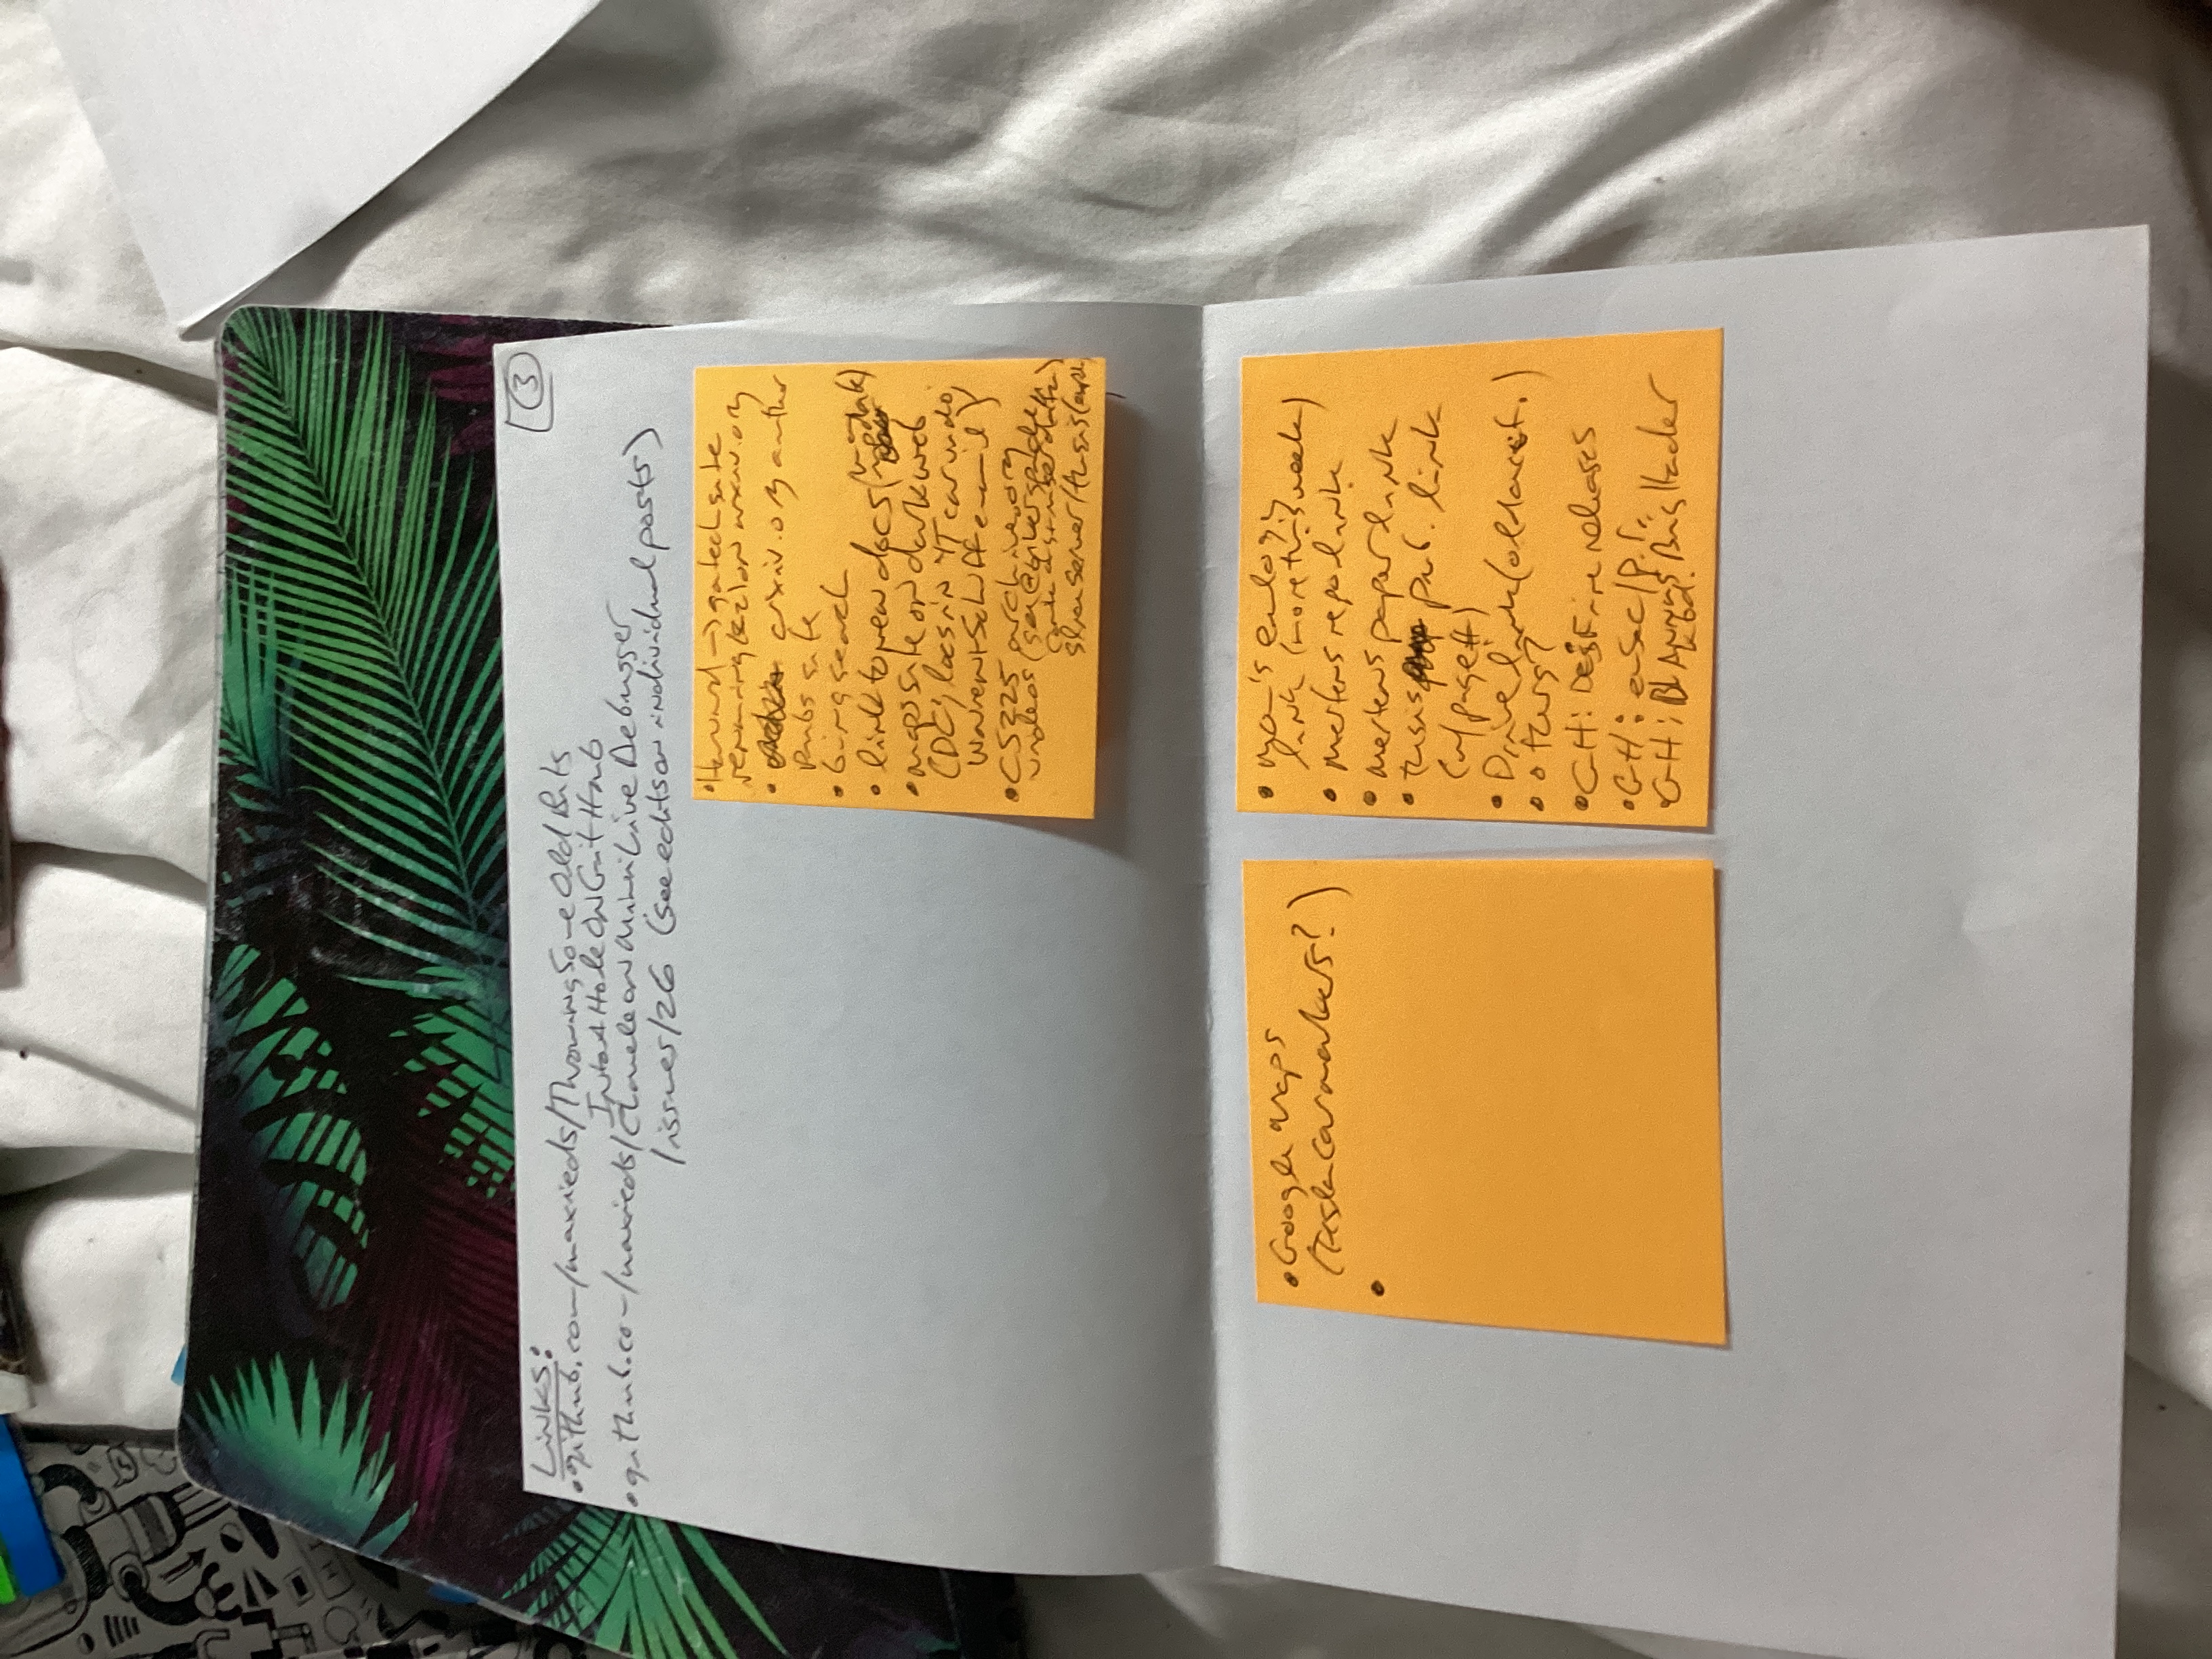 Links:
3
• github.com/maxieds/ThrowingSomeOldBits
IntoAHoleOnGitHub
• github.com/maxieds/ChameleonMiniLiveDebugger
/issues/26 (see edits on individual posts)
• Harvard → gatech site
renaming on arxiv.org
• arxiv.org author
pubs site
• bing search
• link to new docs
• maps site on dark web
(DC; locs in YT car
Warren+Schiff email)
• CS225 archive.org
videos
server/thesis
• Google Maps
(Tesla car markers?)
•
• mom's eulogy
link (more this week)
• Mertens repo link
• Mertens paper link
• thesis pub. link
(w/page#)
• Drive link (old
• others?
• GH: DESFire releases
• GH:
• GH: Bug Hacker